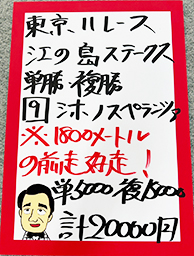 東京11レース
江の島ステークス
単勝・複勝
9 シホノスペランツァ
※1800メートル
の前走好走！
単5000 複15000
計20000円